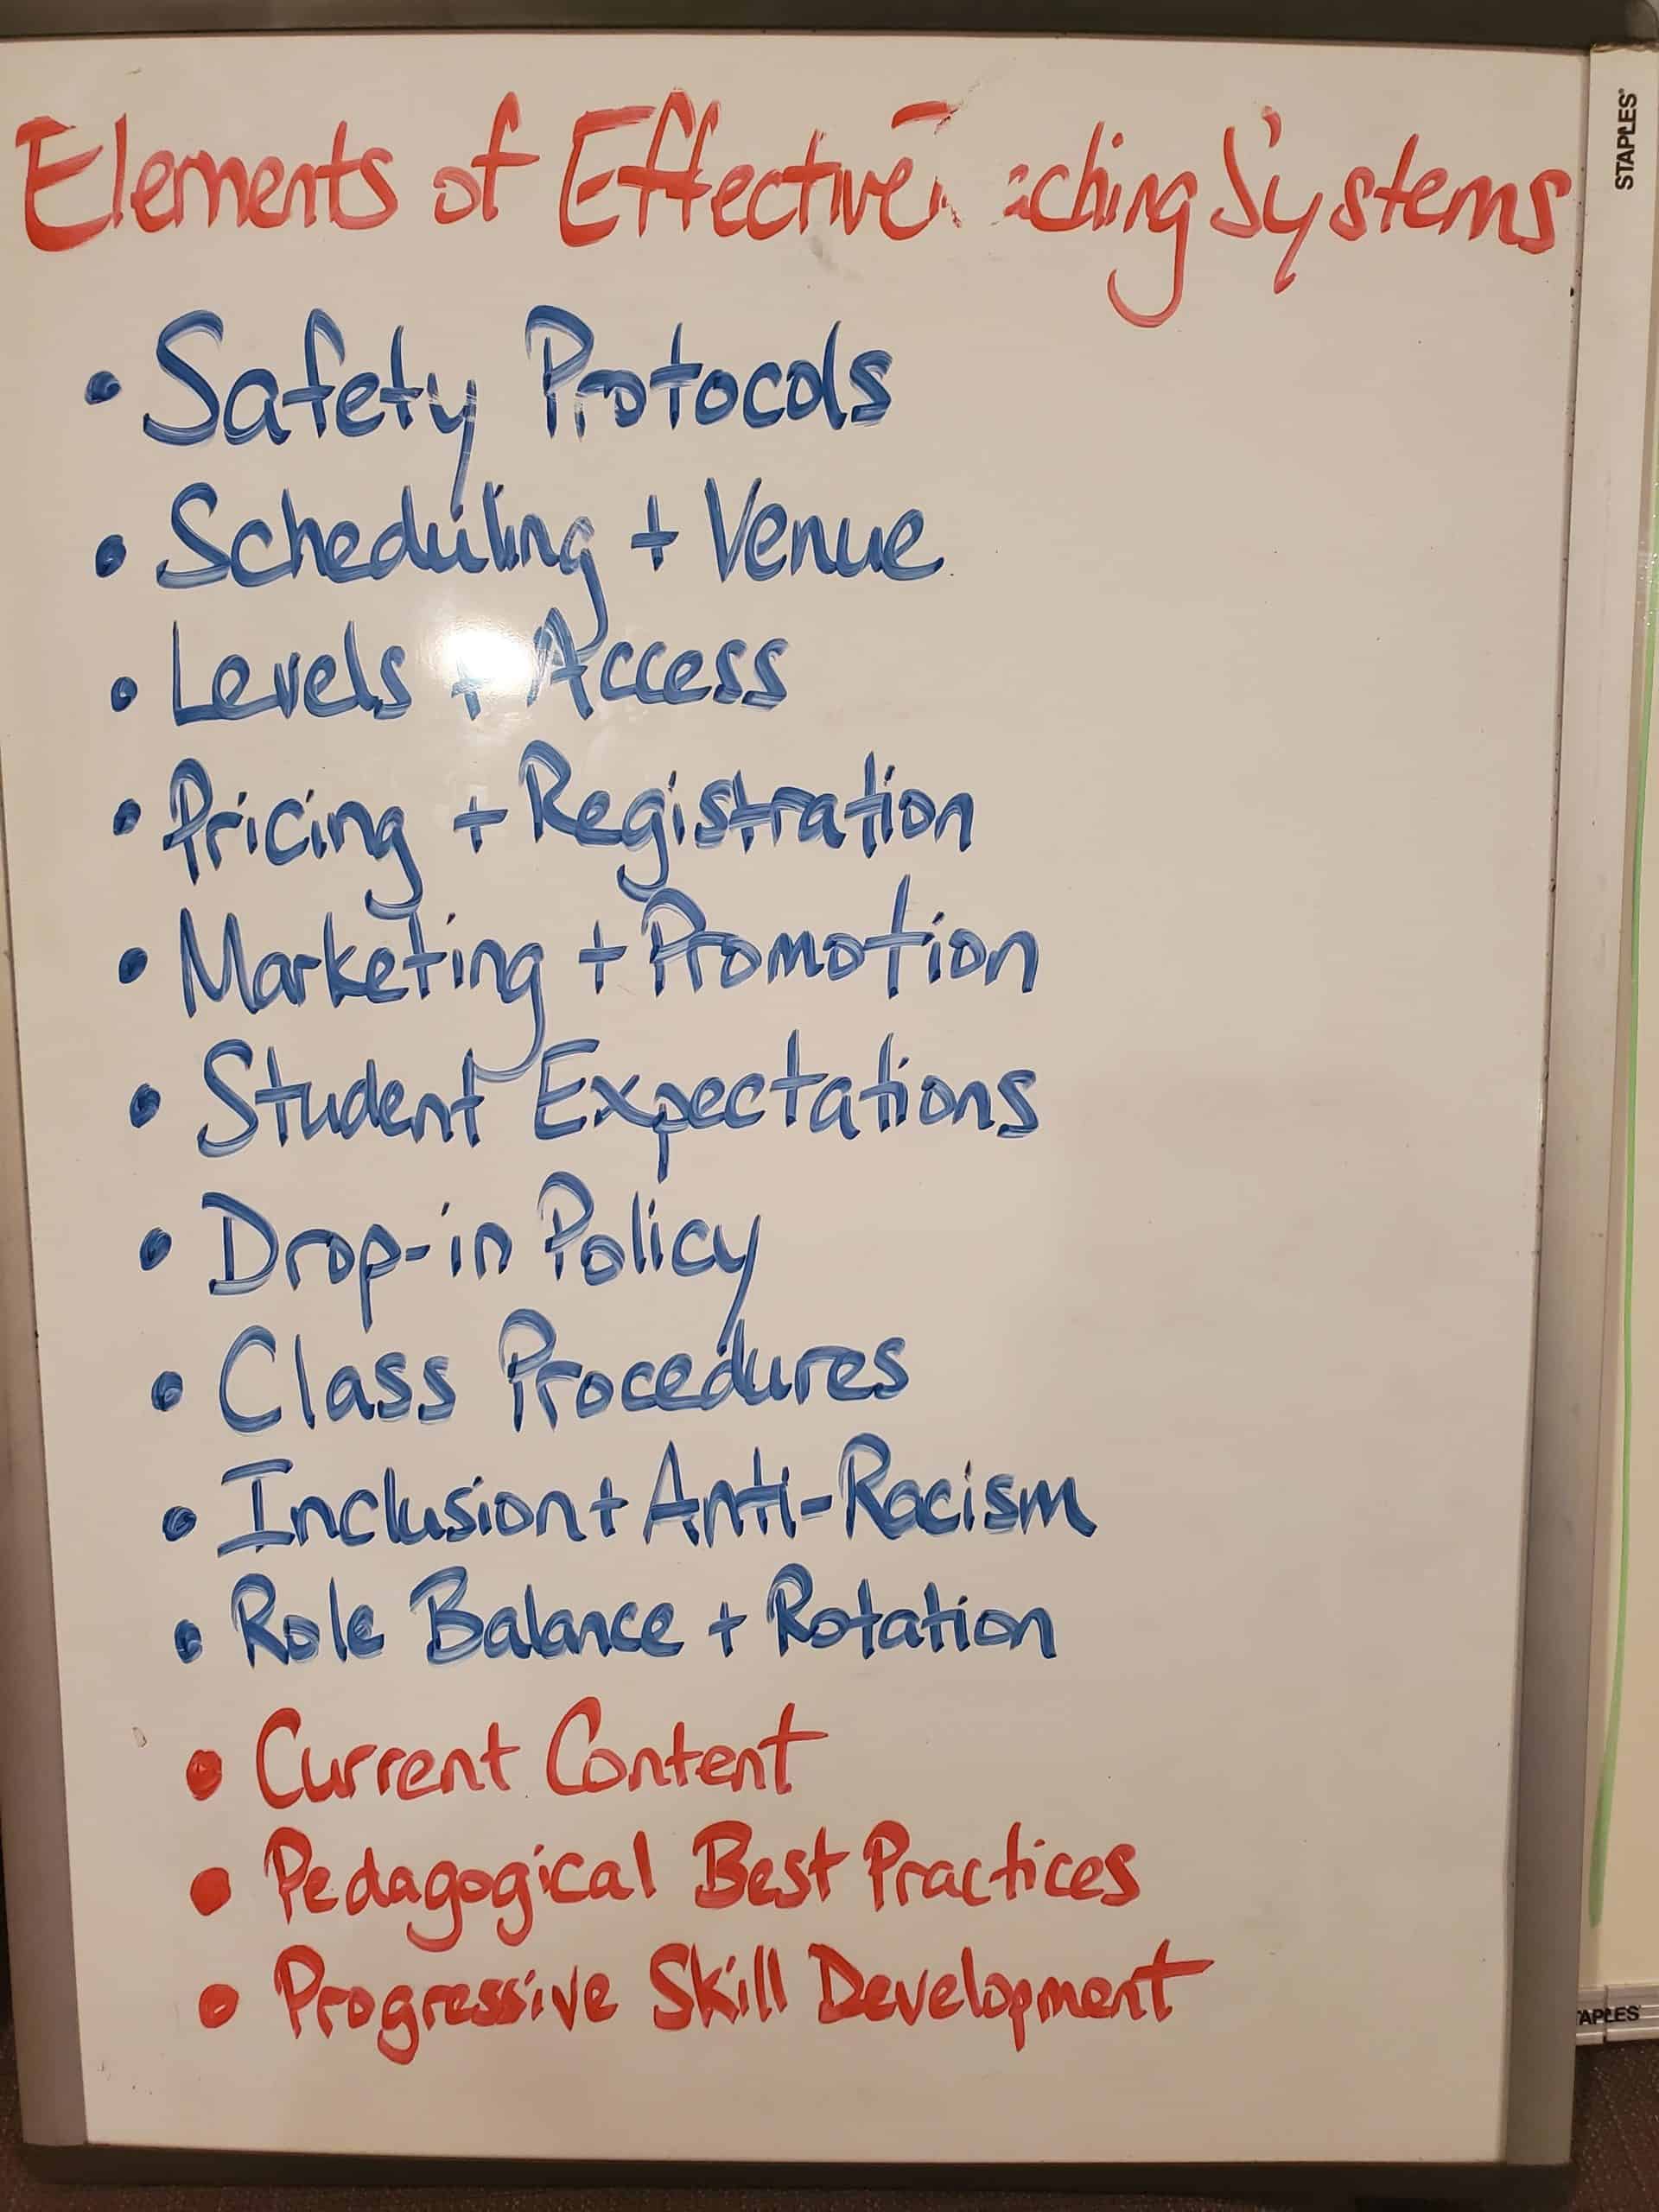 Elements of Effective Systems
• Safety Protocols
• Scheduling + Venue
• Levels + Access
• Pricing + Registration
• Marketing + Promotion
• Student Expectations
• Drop-in Policy
• Class Procedures
• Inclusion + Anti-Racism
• Role Balance + Rotation
• Current Content
• Pedagogical Best Practices
• Progressive Skill Development
STAPLES
STAPLES